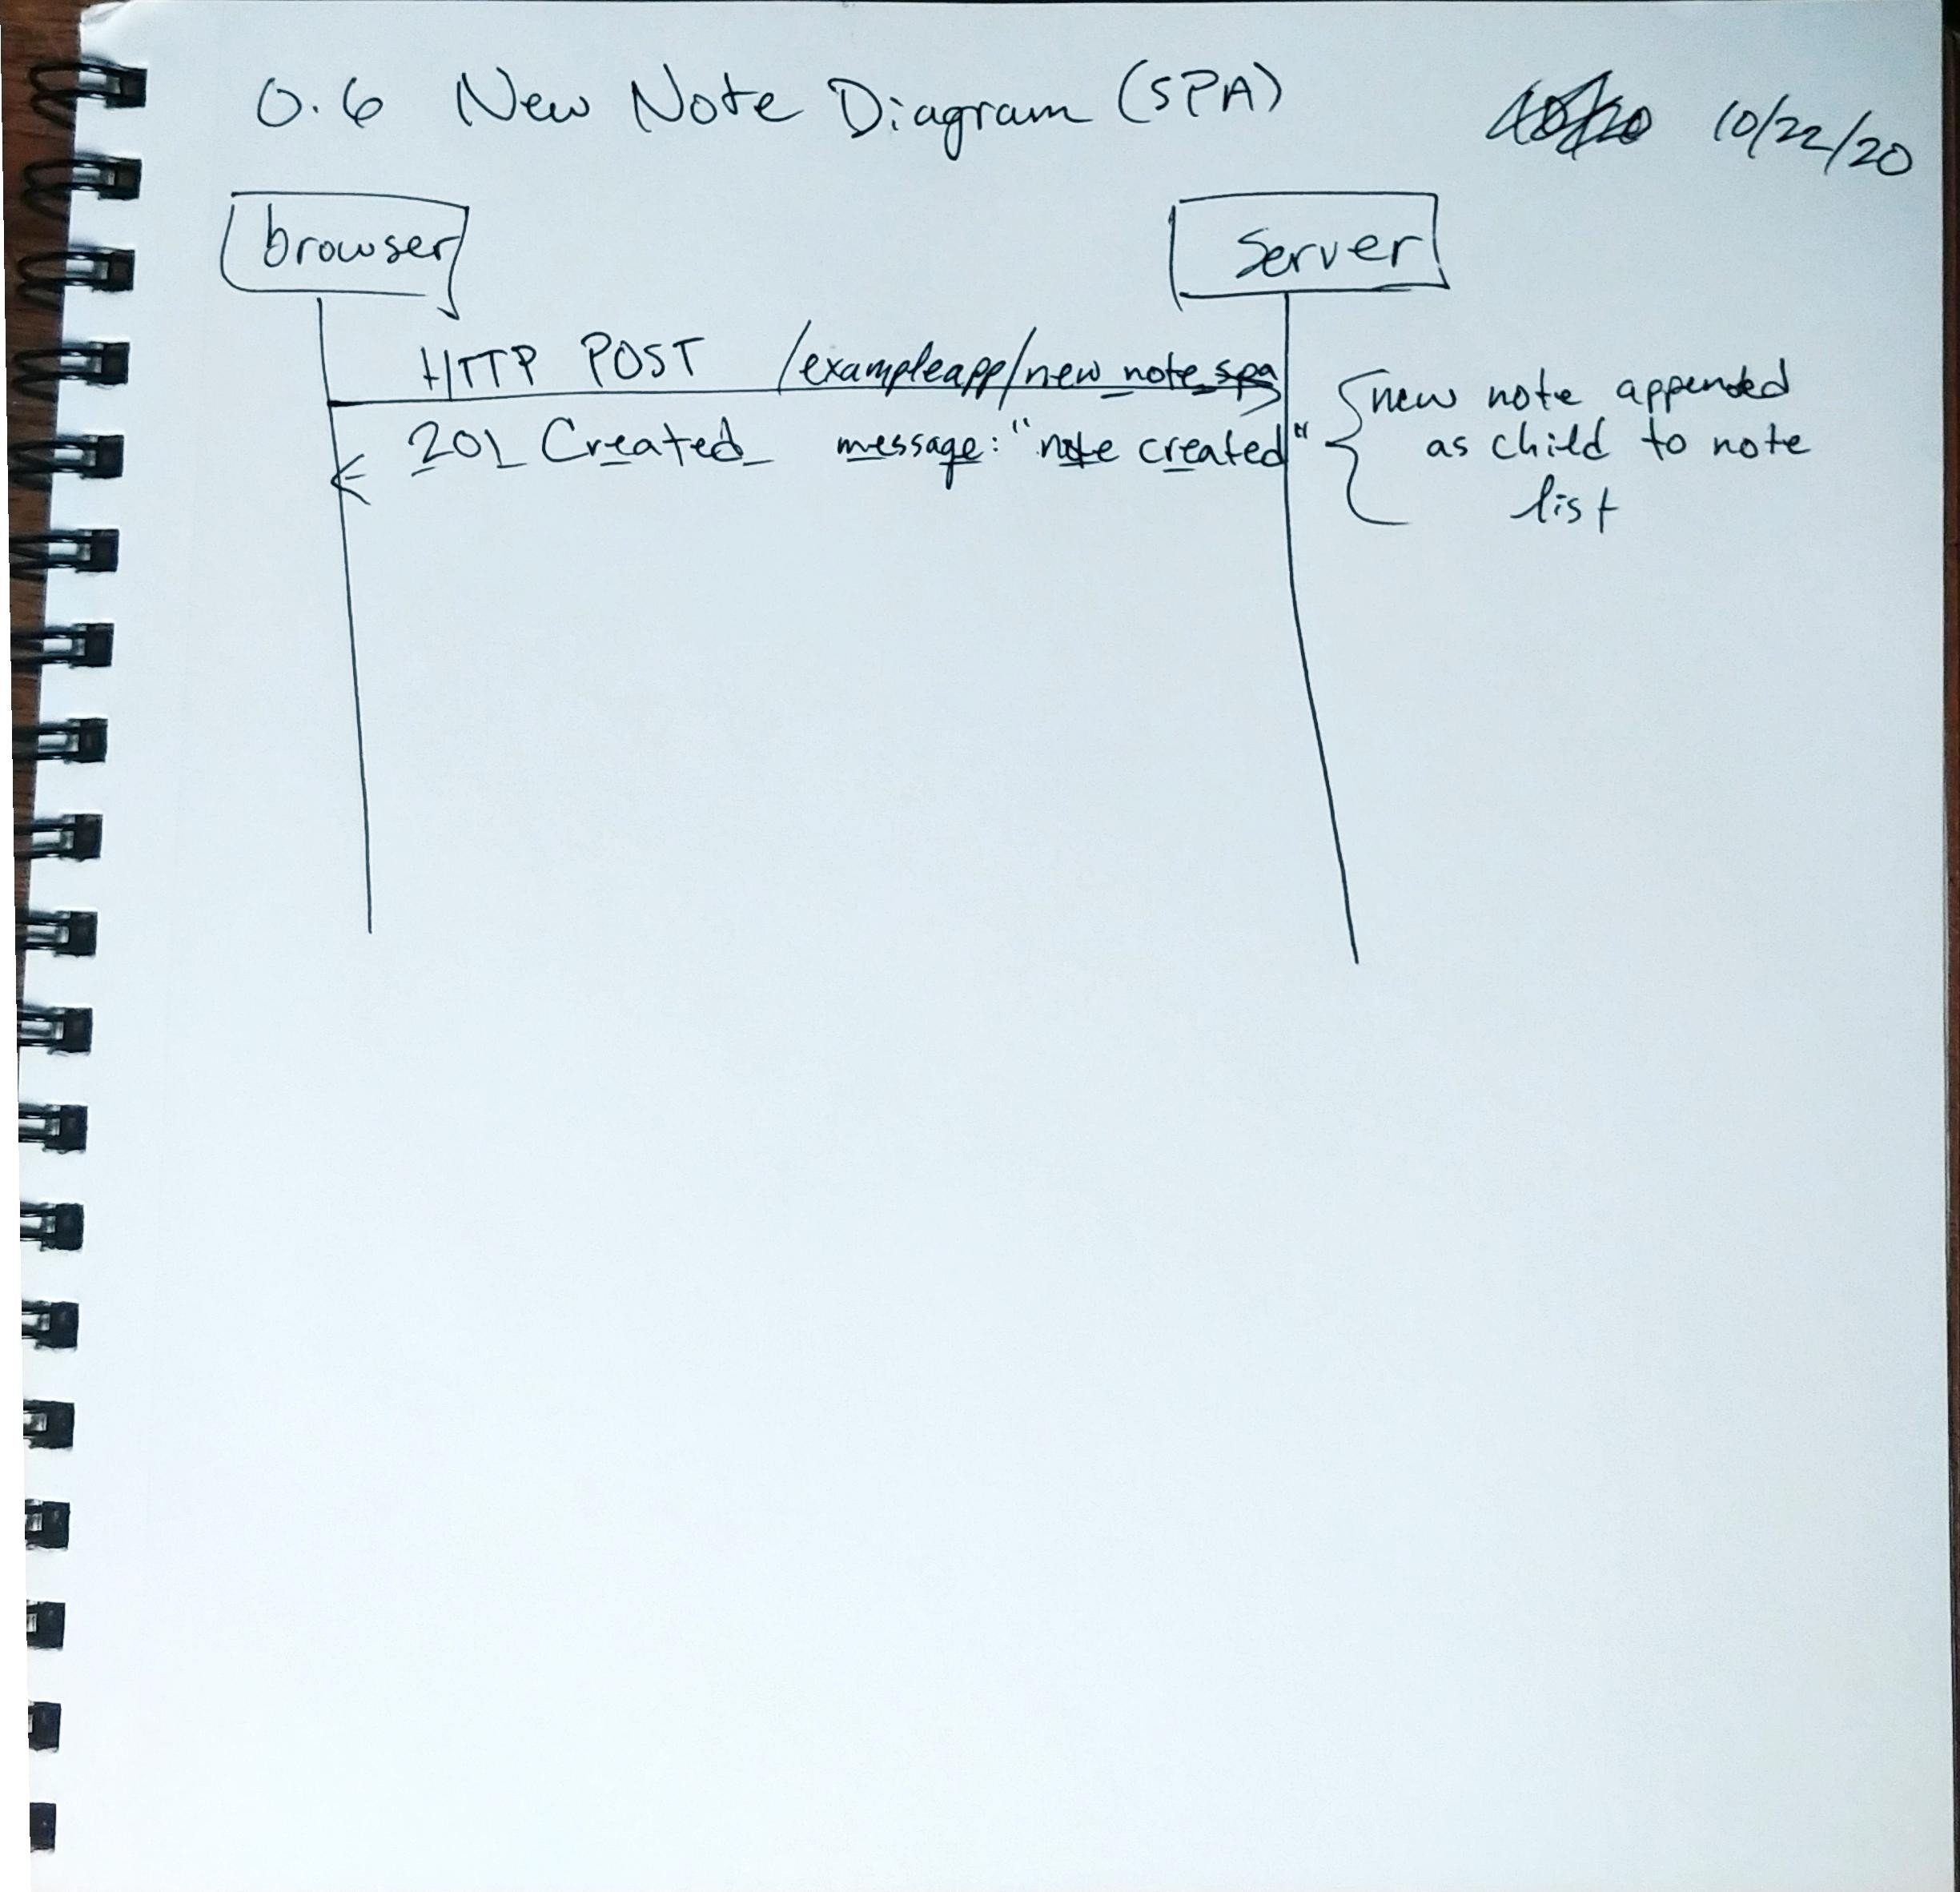 0.6 New Note Diagram (SPA)
10/22/20
browser
Server
HTTP POST /exampleapp/new_note_spa
201 Created message: "note created"
{new note appended
as child to note
list